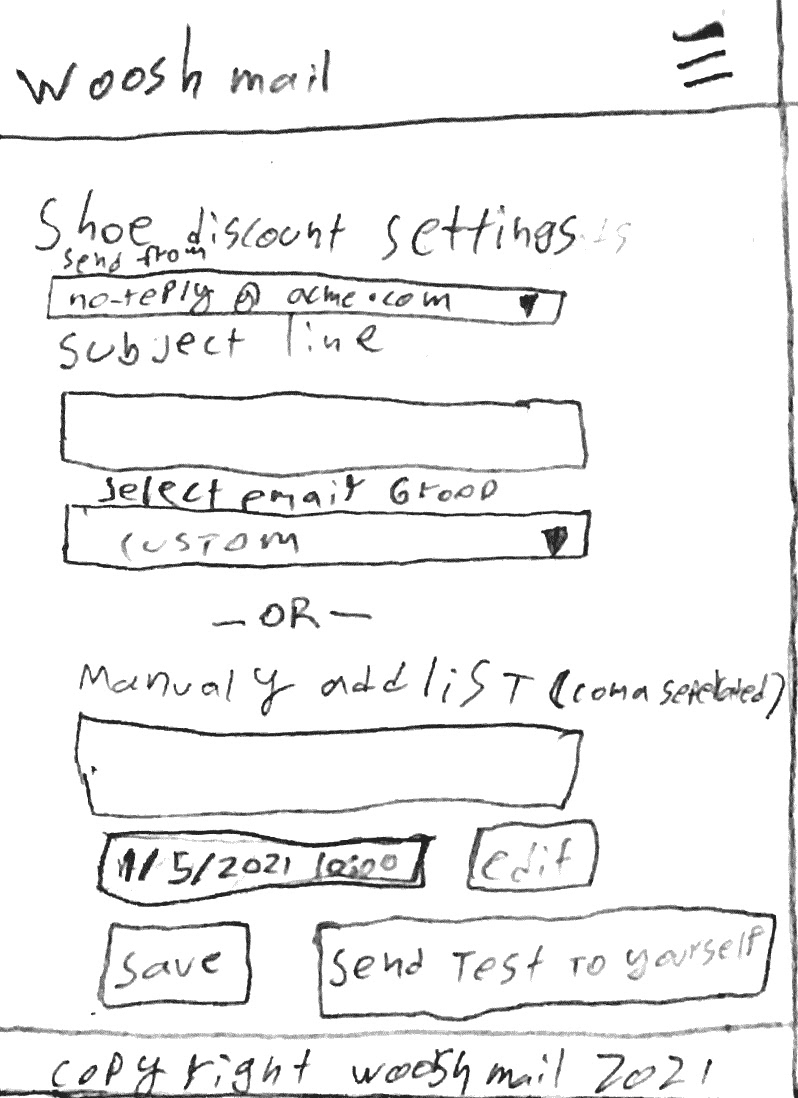 woosh mail
Shoe discount settings
send from
no-reply @ acme.com
subject line
select email Groop
custom
— OR —
Manualy add list (coma seperated)
1/5/2021 10:00 edit
save send Test to yourself
copyright woosh mail 2021